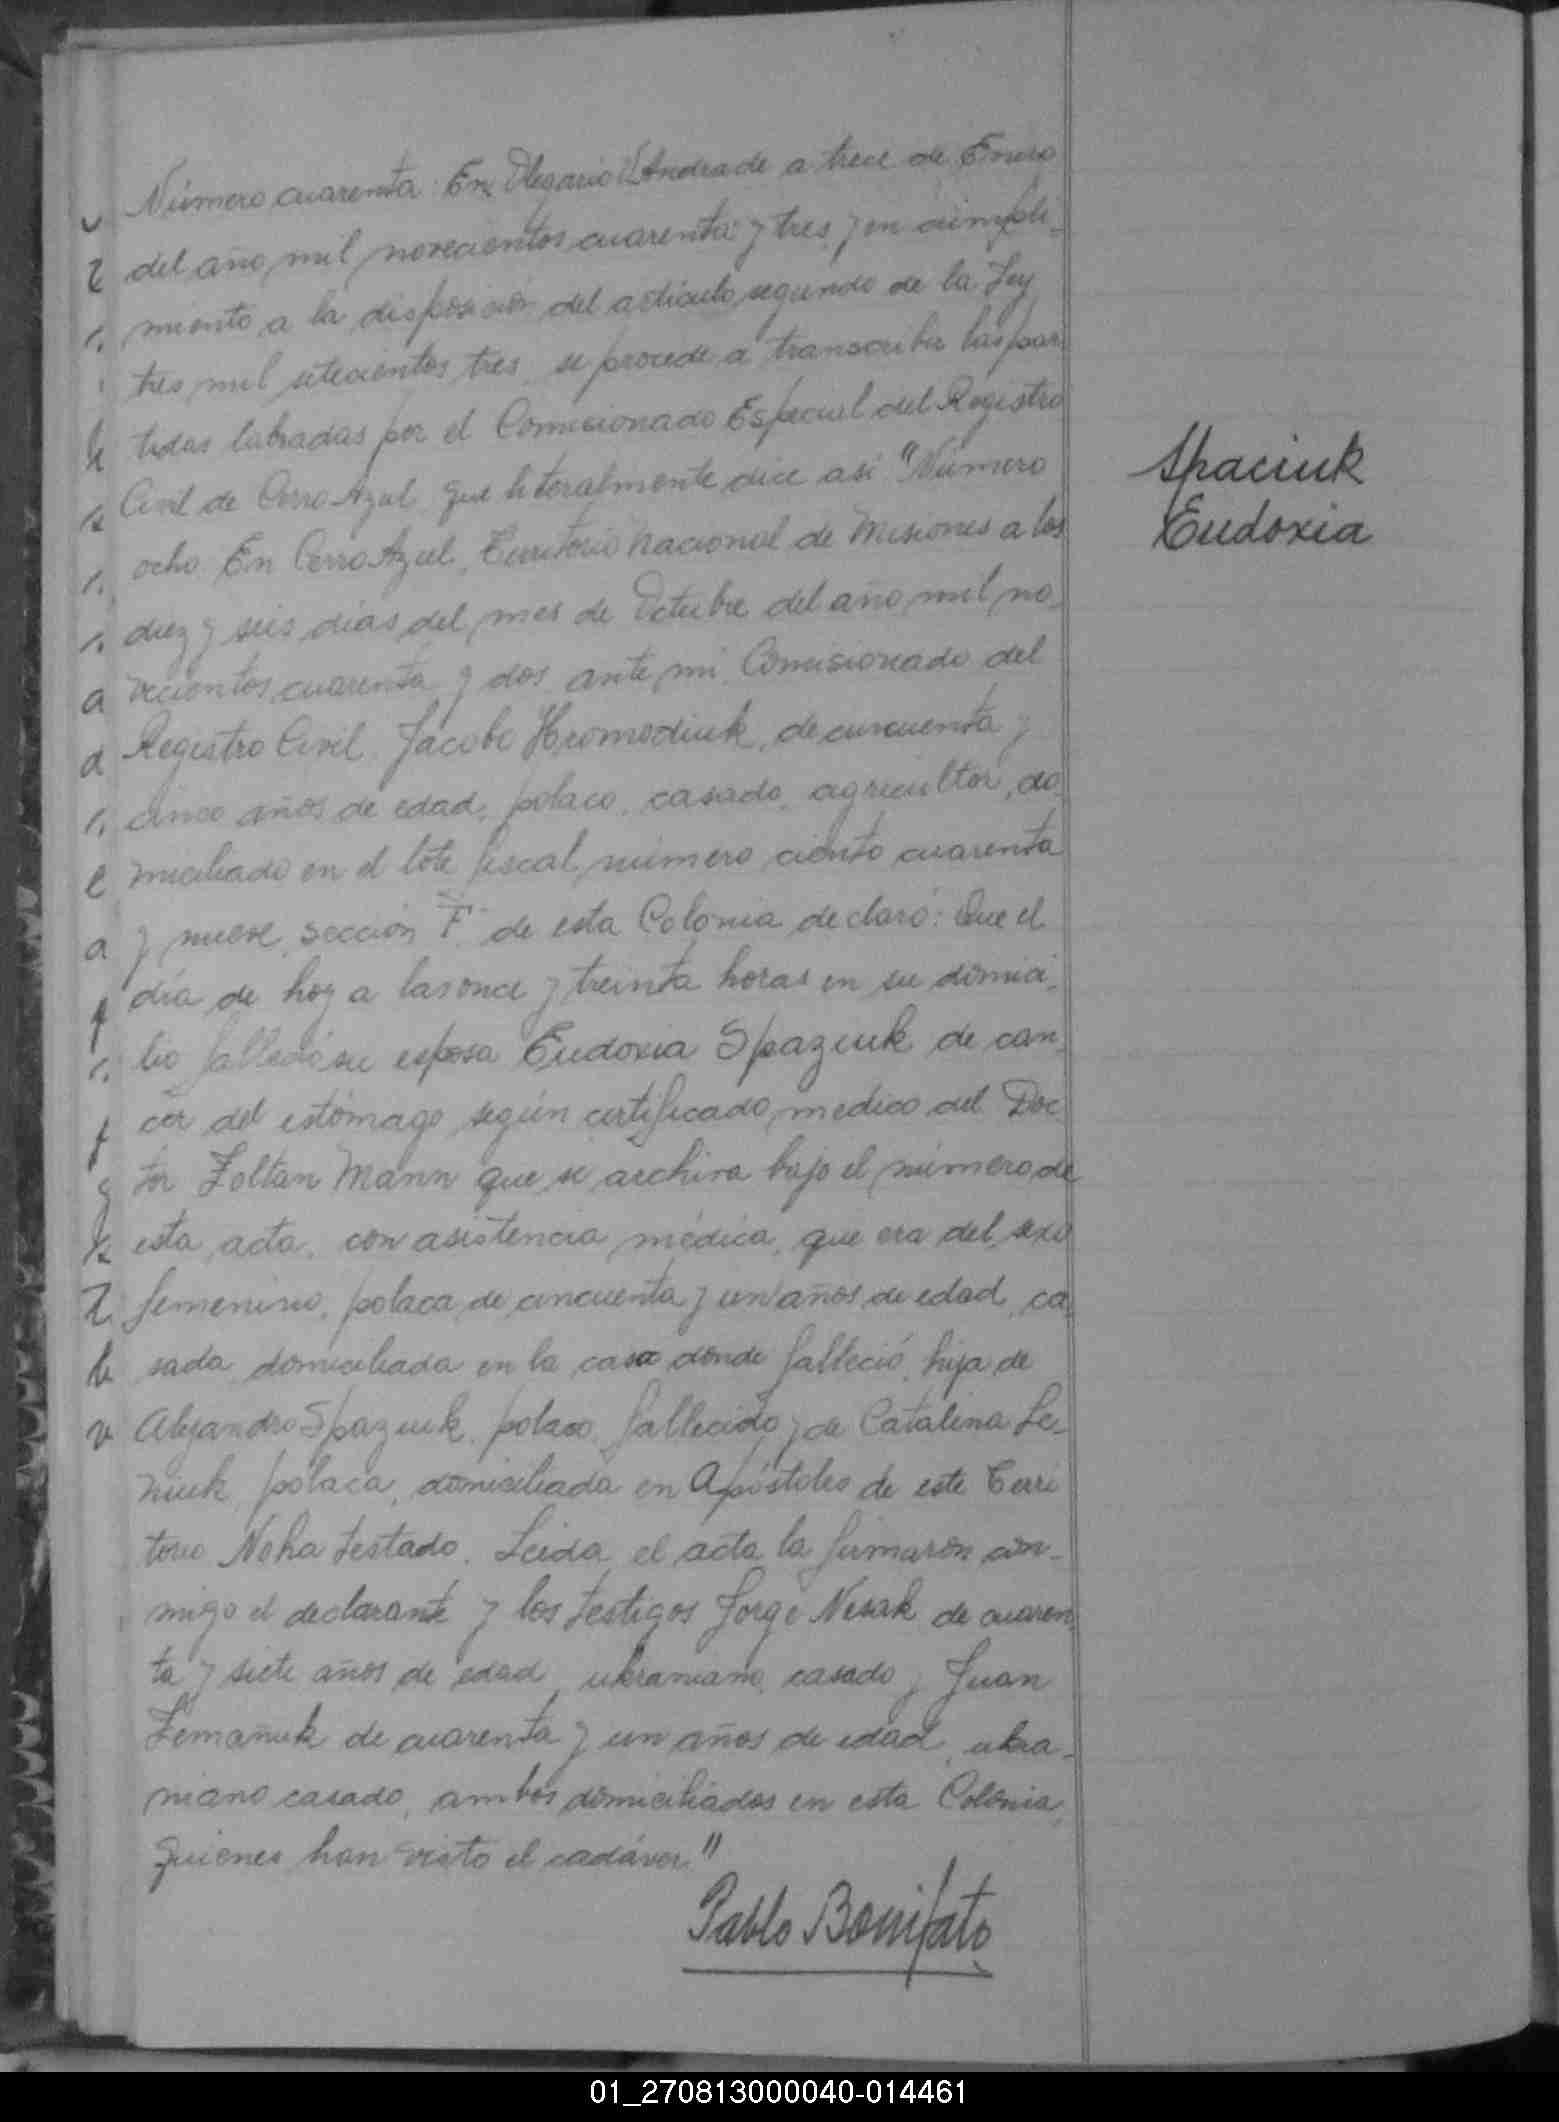 Número cuarenta. En Olegario V. Andrade a trece de Enero
del año mil novecientos cuarenta y tres, y en cumpli-
miento a la disposición del artículo segundo de la Ley
tres mil setecientos tres, se procede a transcribir las par-
tidas labradas por el Comisionado Especial del Registro
Civil de Cerro Azul, que literalmente dice así "Número
ocho. En Cerro Azul, Territorio Nacional de Misiones a los
diez y seis días del mes de Octubre del año mil no-
vecientos cuarenta y dos, ante mi Comisionado del
Registro Civil, Jacobo Hromodiuk, de cincuenta y
cinco años de edad, polaco, casado, agricultor, do-
miciliado en el lote fiscal número ciento cuarenta
y nueve, sección "F" de esta Colonia declaró: Que el
día de hoy a las once y treinta horas en su domici-
lio falleció su esposa Eudoxia Spaziuk de can-
cer del estómago según certificado medico del Doc-
tor Zoltan Mann que se archiva bajo el número de
esta acta, con asistencia médica, que era del sexo
femenino, polaca, de cincuenta y un años de edad, ca-
sada domiciliada en la casa donde falleció, hija de
Alejandro Spaziuk, polaco, fallecido y de Catalina Le-
niuk, polaca, domiciliada en Apóstoles de este Terri
torio No ha testado. Leida el acta la firmaron con-
migo el declarante y los testigos Jorge Nesak de cuaren-
ta y siete años de edad, ukraniano, casado y Juan
Zemañuk de cuarenta y un años de edad, ukra-
niano casado, ambos domiciliados en esta Colonia,
quienes han visto el cadáver."
Pablo Bonifato
Spaciuk
Eudoxia
01_270813000040-014461